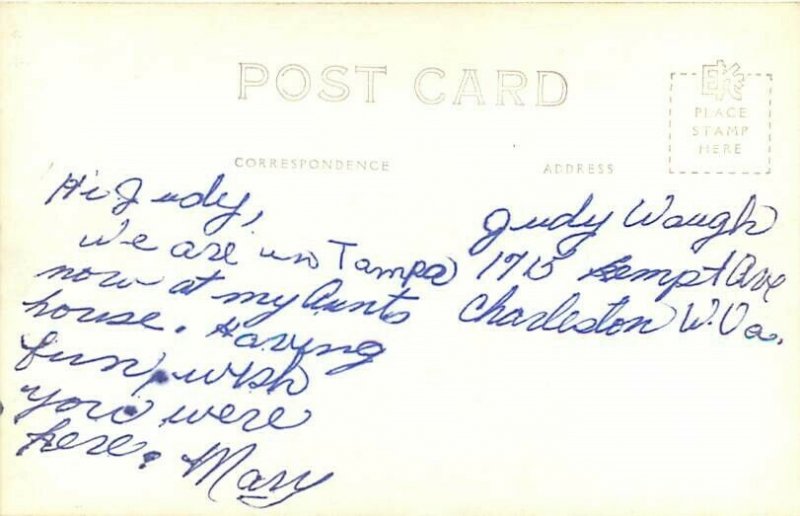 POST CARD
EK
PLACE
STAMP
HERE
CORRESPONDENCE
ADDRESS
Hi Judy,
we are in Tampa
now at my Aunts
house. Having
fun, wish
you were
here. Mary
Judy Waugh
1715 Ave
Charleston W.Va.